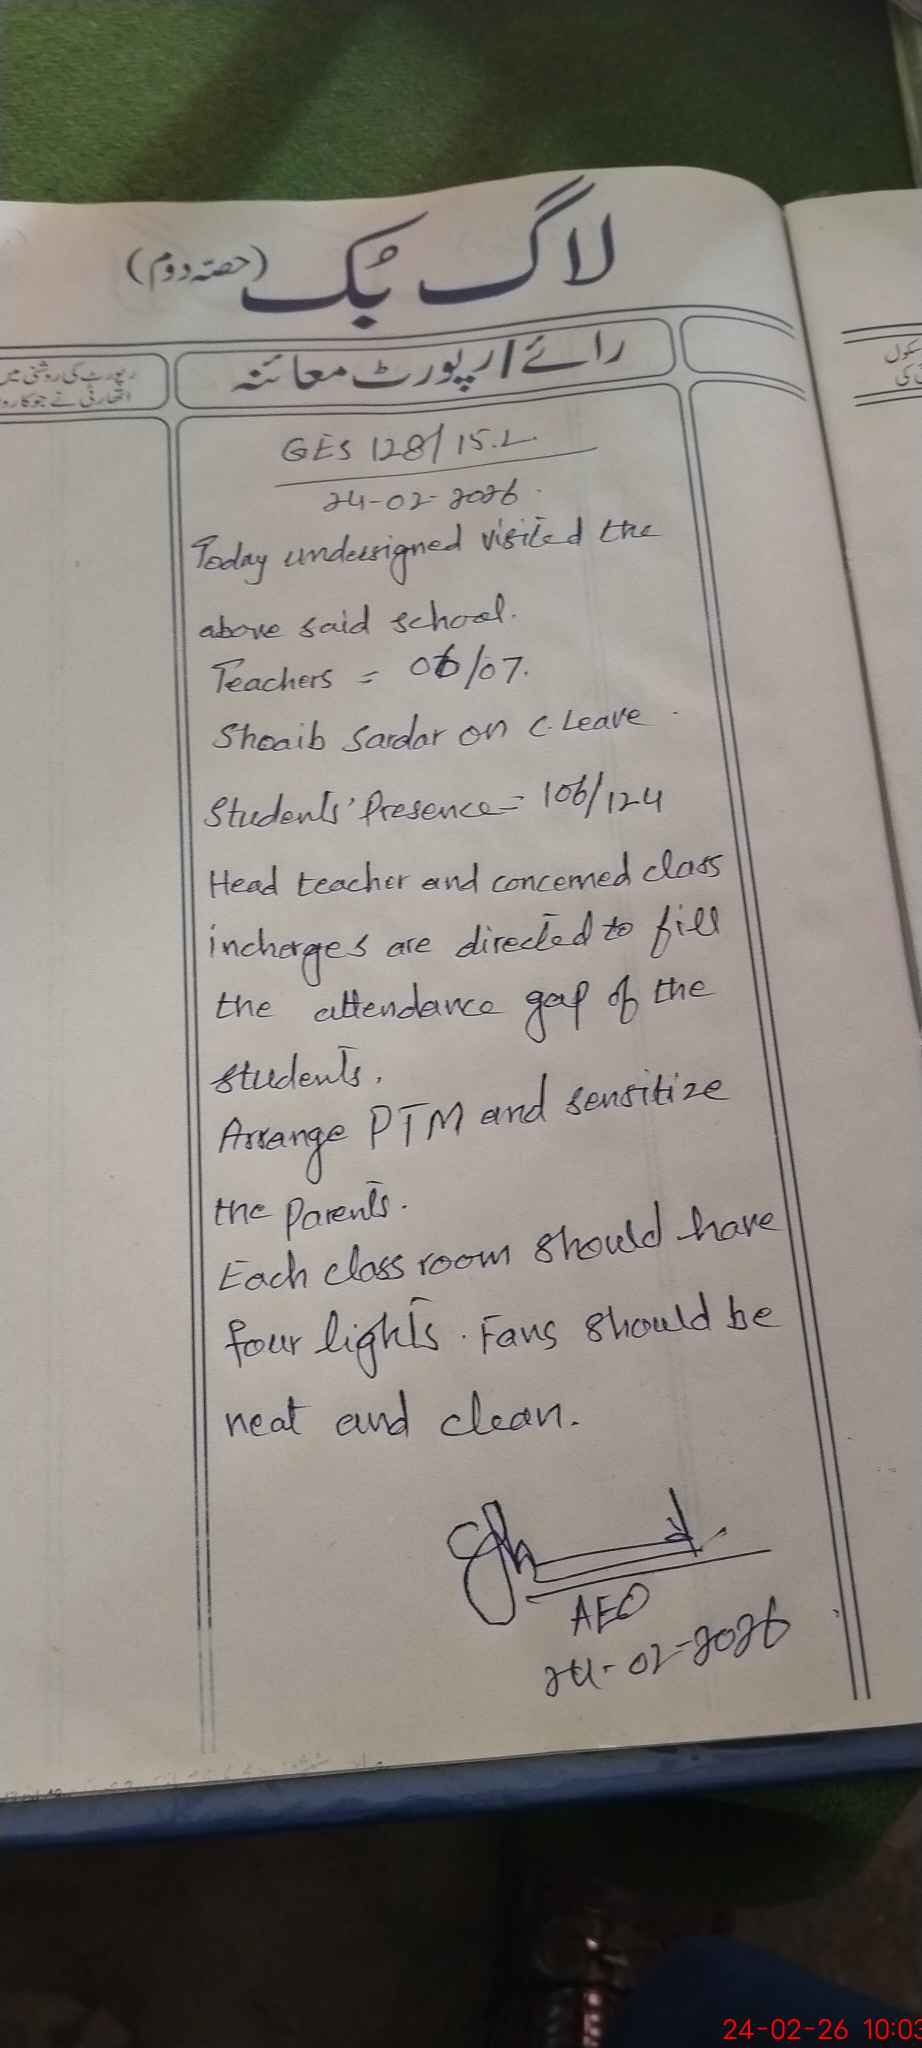 لاگ بُک (حصّہ دوم)
رائے / رپورٹ معائنہ
رپورٹ کی روشنی میں
اتھارٹی نے جو کارو
سکول
کی
GES 128/15.L
24-02-2026.
Today undersigned visited the
above said school.
Teachers = 06/07.
Shoaib Sardar on C.Leave.
Students' Presence = 106/124
Head teacher and concerned class
incharges are directed to fill
the attendance gap of the
students.
Arrange PTM and sensitize
the Parents.
Each class room should have
four lights. Fans should be
neat and clean.
AEO
24-02-2026
24-02-26 10:03